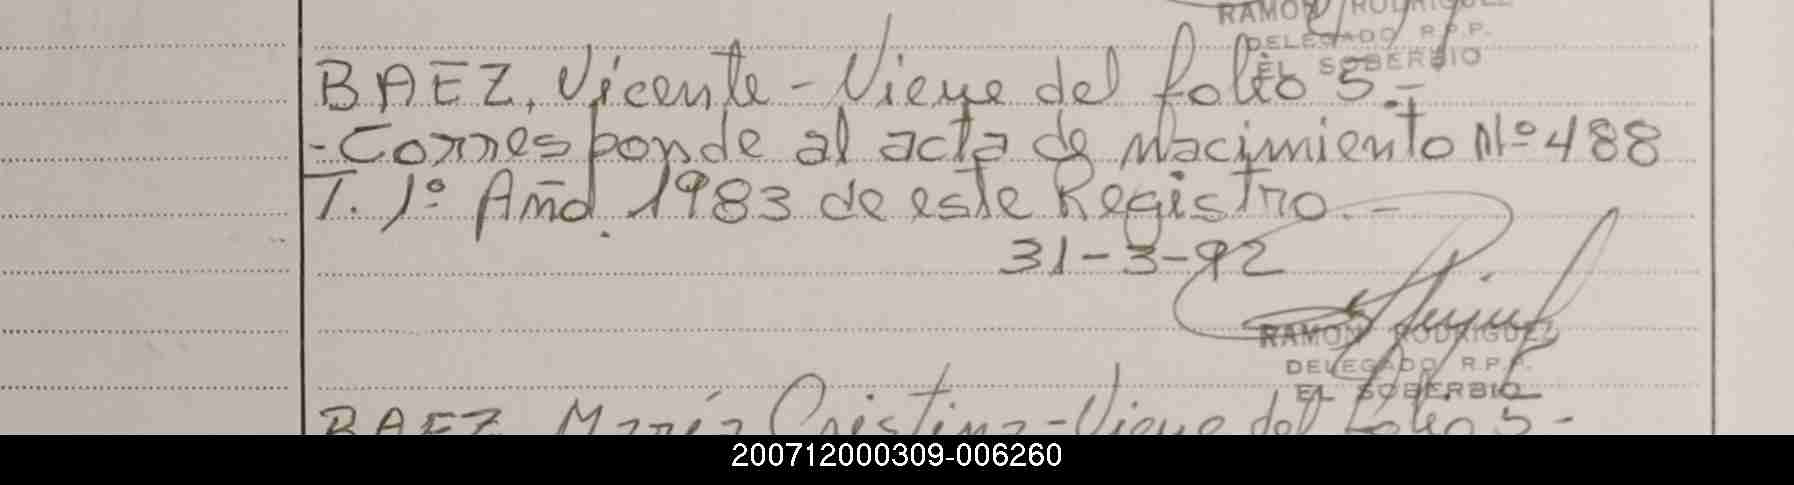 RAMON RODRIGUEZ
DELEGADO R.P.P.
EL SOBERBIO
BAEZ, Vicente - Viene del folio 5.-
- Corresponde al acta de Nacimiento Nº 488
T. 1º Año 1983 de este Registro. -
31-3-92
RAMON RODRIGUEZ
DELEGADO R.P.P.
EL SOBERBIO
BAEZ María Cristina - Viene del folio 5 -
200712000309-006260